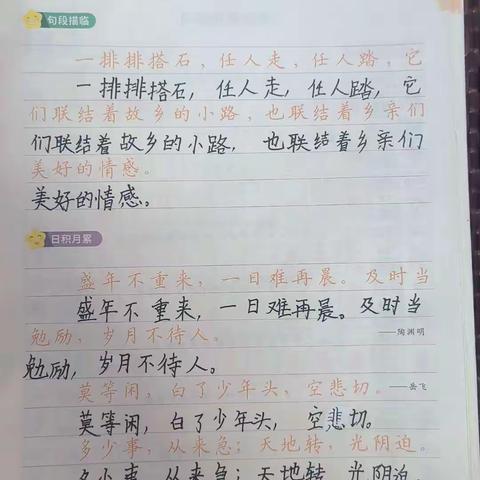 句段描临
一排排搭石，任人走，任人踏，它
一排排搭石，任人走，任人踏，它
们联结着故乡的小路，也联结着乡亲们
们联结着故乡的小路，也联结着乡亲们
美好的情感。
美好的情感。
日积月累
盛年不重来，一日难再晨。及时当
盛年不重来，一日难再晨。及时当
勉励，岁月不待人。 ——陶渊明
勉励，岁月不待人。
莫等闲，白了少年头，空悲切。——岳飞
莫等闲，白了少年头，空悲切。
多少事，从来急；天地转，光阴迫。
多少事，从来急；天地转，光阴迫，